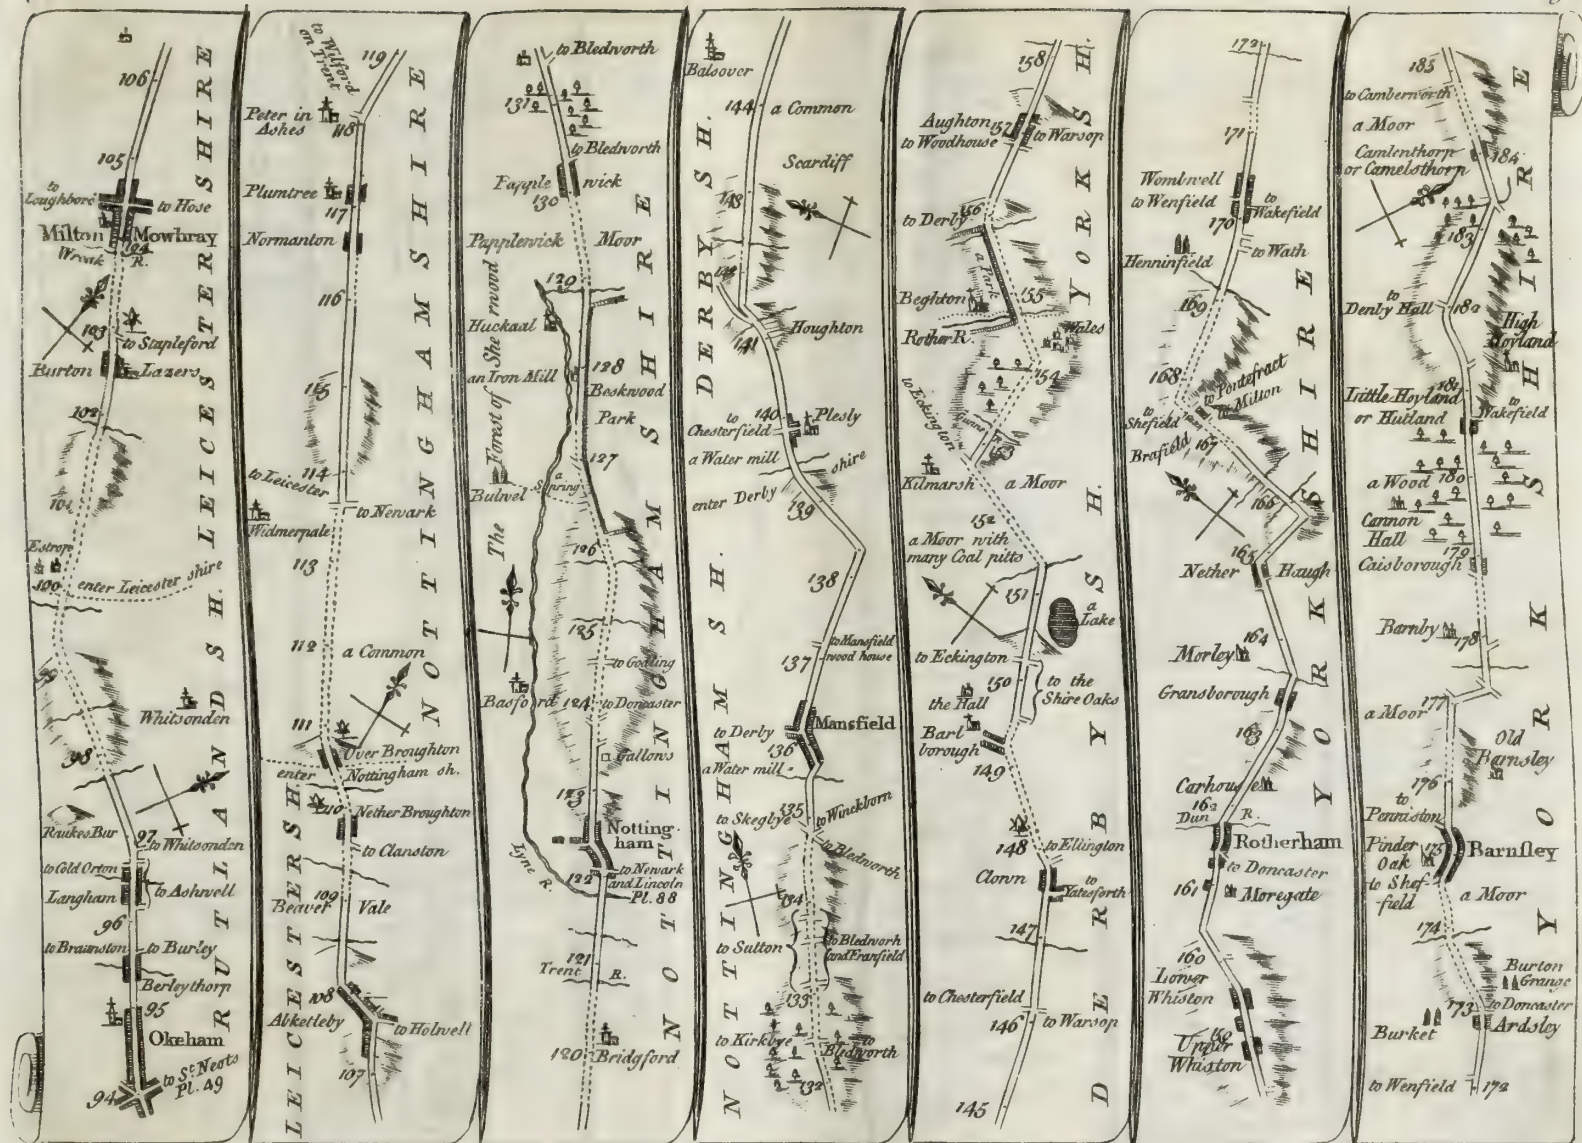 106
105
to
Loughboro
to Hose
Milton
Mowbray
Wreak
104
R.
103
to Stapleford
Burton
Lazers
102
101
Estrop
100
enter Leicester shire
99
Whitsonden
98
Raukes Bur
97
to Whitsonden
to Cold Orton
to Ashwell
Langham
96
to Braunston
to Burley
Berleythorp
95
Okeham
94
to St Neots
Pl. 49
RUTLANDSH.
LEICESTERSHIRE
to Wilford
on Trent
119
Peter in
Ashes
118
Plumtree
117
Normanton
116
115
114
to Leicester
to Newark
Widmerpale
113
112
a Common
111
Over Broughton
enter
Nottingham sh.
110
Nether Broughton
to Clanston
109
Beaver
Vale
108
Abketleby
to Holwell
107
LEICESTERSH.
NOTTINGHAMSHIRE
to Bledworth
131
to Bledworth
Papple
wick
130
Papplewick
Moor
129
Huckaal
128
an Iron Mill
Beskwood
Park
The Forest of Sherwood
127
Bulwel
a
Spring
126
125
to Godling
Basford
124
to Doncaster
Gallows
123
Notting-
ham
Lyne R.
122
to Newark
and Lincoln
Pl. 88
121
Trent
R.
120
Bridgford
NOTTINGHAMSHIRE
Balsover
144
a Common
Scardiff
143
142
Houghton
141
140
to
Chesterfield
Plesly
a Water mill
enter Derby
shire
139
138
137
to Mansfield
wood house
Mansfield
to Derby
136
a Water mill
135
to Skegbye
to Winckborn
to Bledworth
134
to Sutton
to Bledworh
and Franfield
133
to Kirkbye
to
Bledworth
132
NOTTINGHAMSH.
DERBYSH.
158
Aughton
157
to Woodhouse
to Warsop
156
to Derby
a Park
155
Beghton
Rother R.
Wales
154
to Eckington
153
Kilmarsh
a Moor
152
a Moor with
many Coal pitts
151
a
Lake
to Eckington
150
to the
Shire Oaks
the Hall
Barl
borough
149
148
to Ellington
Clown
to
Yatesforth
147
to Chesterfield
146
to Warsop
145
DERBYSH.
YORKSH.
172
171
Wombwell
to Wenfield
to
Wakefield
170
to Wath
Henninfield
169
168
to Pontefract
to Milton
to
Shefield
167
Brafield
166
165
Nether
Haugh
164
Morley
Gransborough
163
Carhouse
162
Dun
R.
Rotherham
to Doncaster
161
Moregate
160
Lower
Whiston
Upper
Whiston
YORKSHIRE
185
to Camberworth
a Moor
Camlenthorp
or Camelsthorp
184
183
to
Denby Hall
182
High
Hoyland
181
Little Hoyland
or Hutland
to
Wakefield
a Wood
180
Cannon
Hall
179
Caisborough
Barnby
178
177
a Moor
Old
Barnsley
176
to
Penniston
Pinder
Oak
175
Barnsley
to Shef-
field
a Moor
174
Burton
Grange
173
to Doncaster
Burket
Ardsley
to Wenfield
172
YORKSHIRE